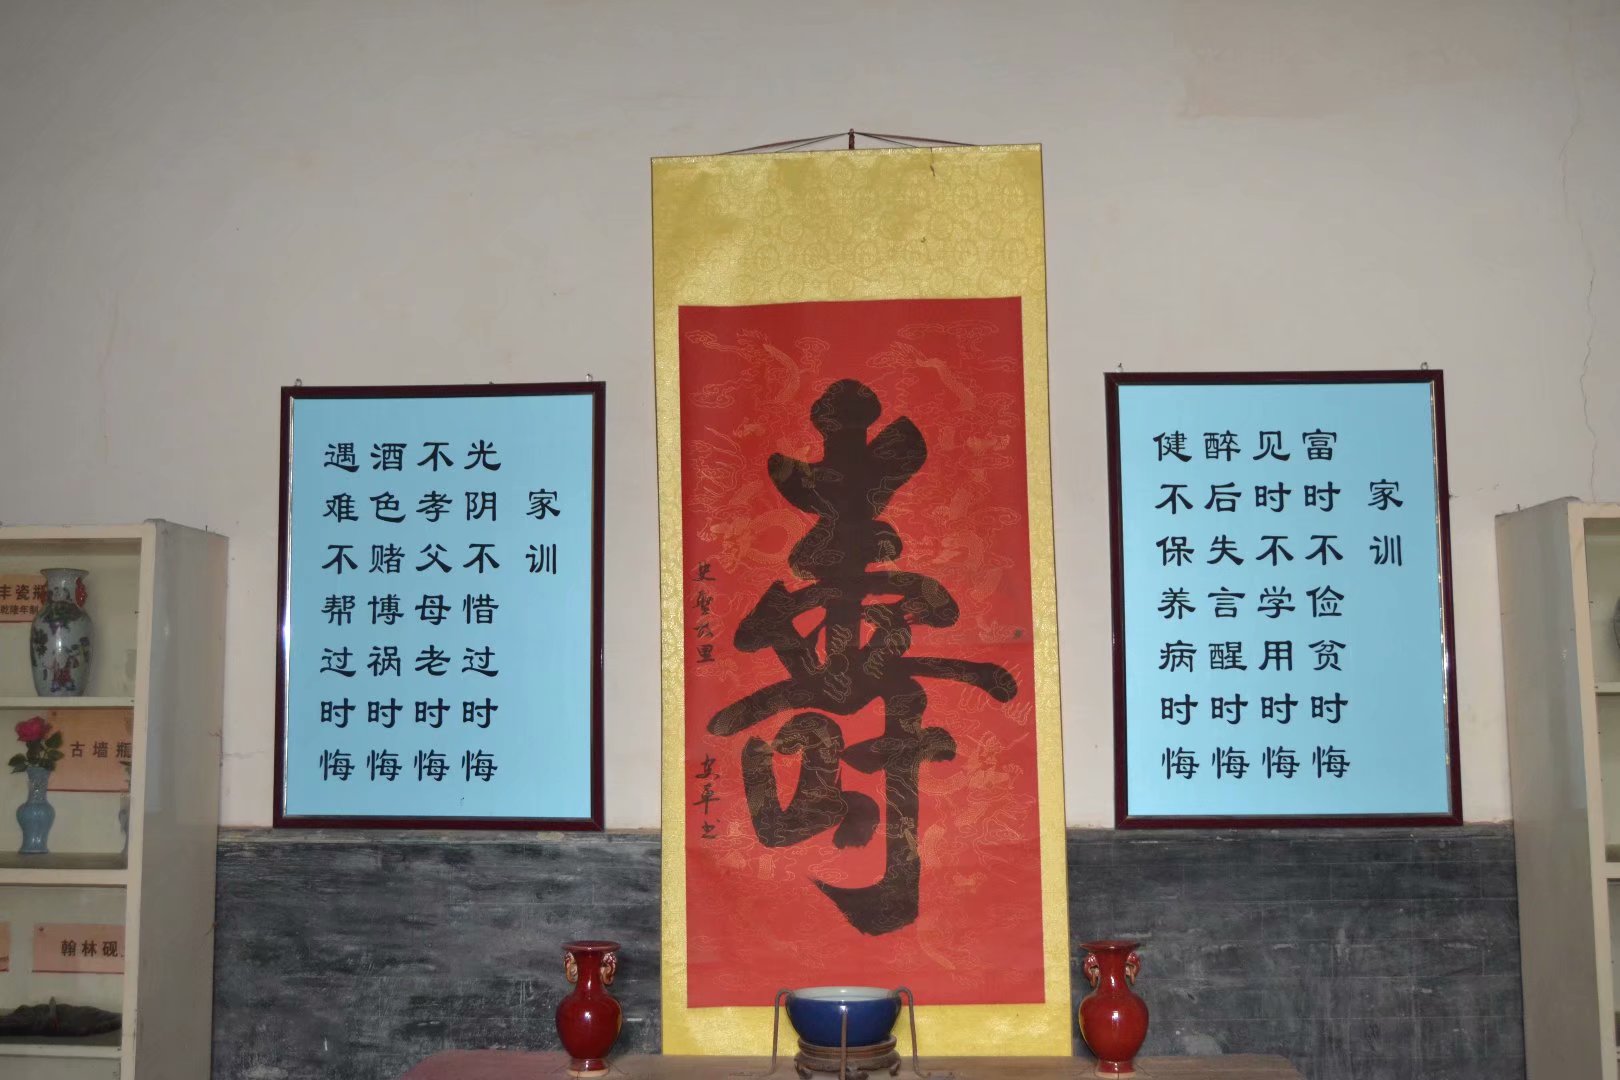 家训
富时不俭贫时悔
见时不学用时悔
醉后失言醒时悔
健不保养病时悔
寿
史聖故里
家训
光阴不惜过时悔
不孝父母老时悔
酒色赌博祸时悔
遇难不帮过时悔
丰瓷瓶
乾隆年制
古墙瓶
翰林砚